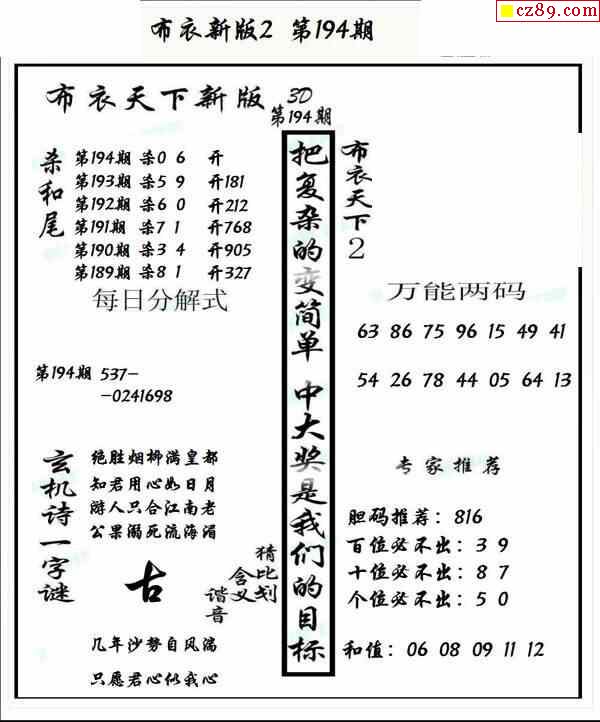 cz89.com
布衣新版2 第194期
布衣天下新版 3D
第194期
杀和尾
第194期 杀0 6 开
第193期 杀5 9 开181
第192期 杀6 0 开212
第191期 杀7 1 开768
第190期 杀3 4 开905
第189期 杀8 1 开327
每日分解式
第194期 537-
-0241698
玄机诗一字谜
绝胜烟柳满皇都
知君用心如日月
游人只合江南老
公果溺死流海湄
古
猜比划
含义
谐音
几年沙势自风湍
只愿君心似我心
把复杂的变简单 中大奖是我们的目标
布衣天下2
万能两码
63 86 75 96 15 49 41
54 26 78 44 05 64 13
专家推荐
胆码推荐：816
百位必不出：3 9
十位必不出：8 7
个位必不出：5 0
和值：06 08 09 11 12